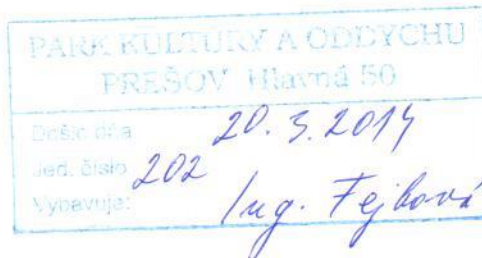 PARK KULTURY A ODDYCHU
PREŠOV Hlavná 50
Došlo dňa 20. 3. 2014
Jed. číslo 202
Vybavuje: Ing. Fejková